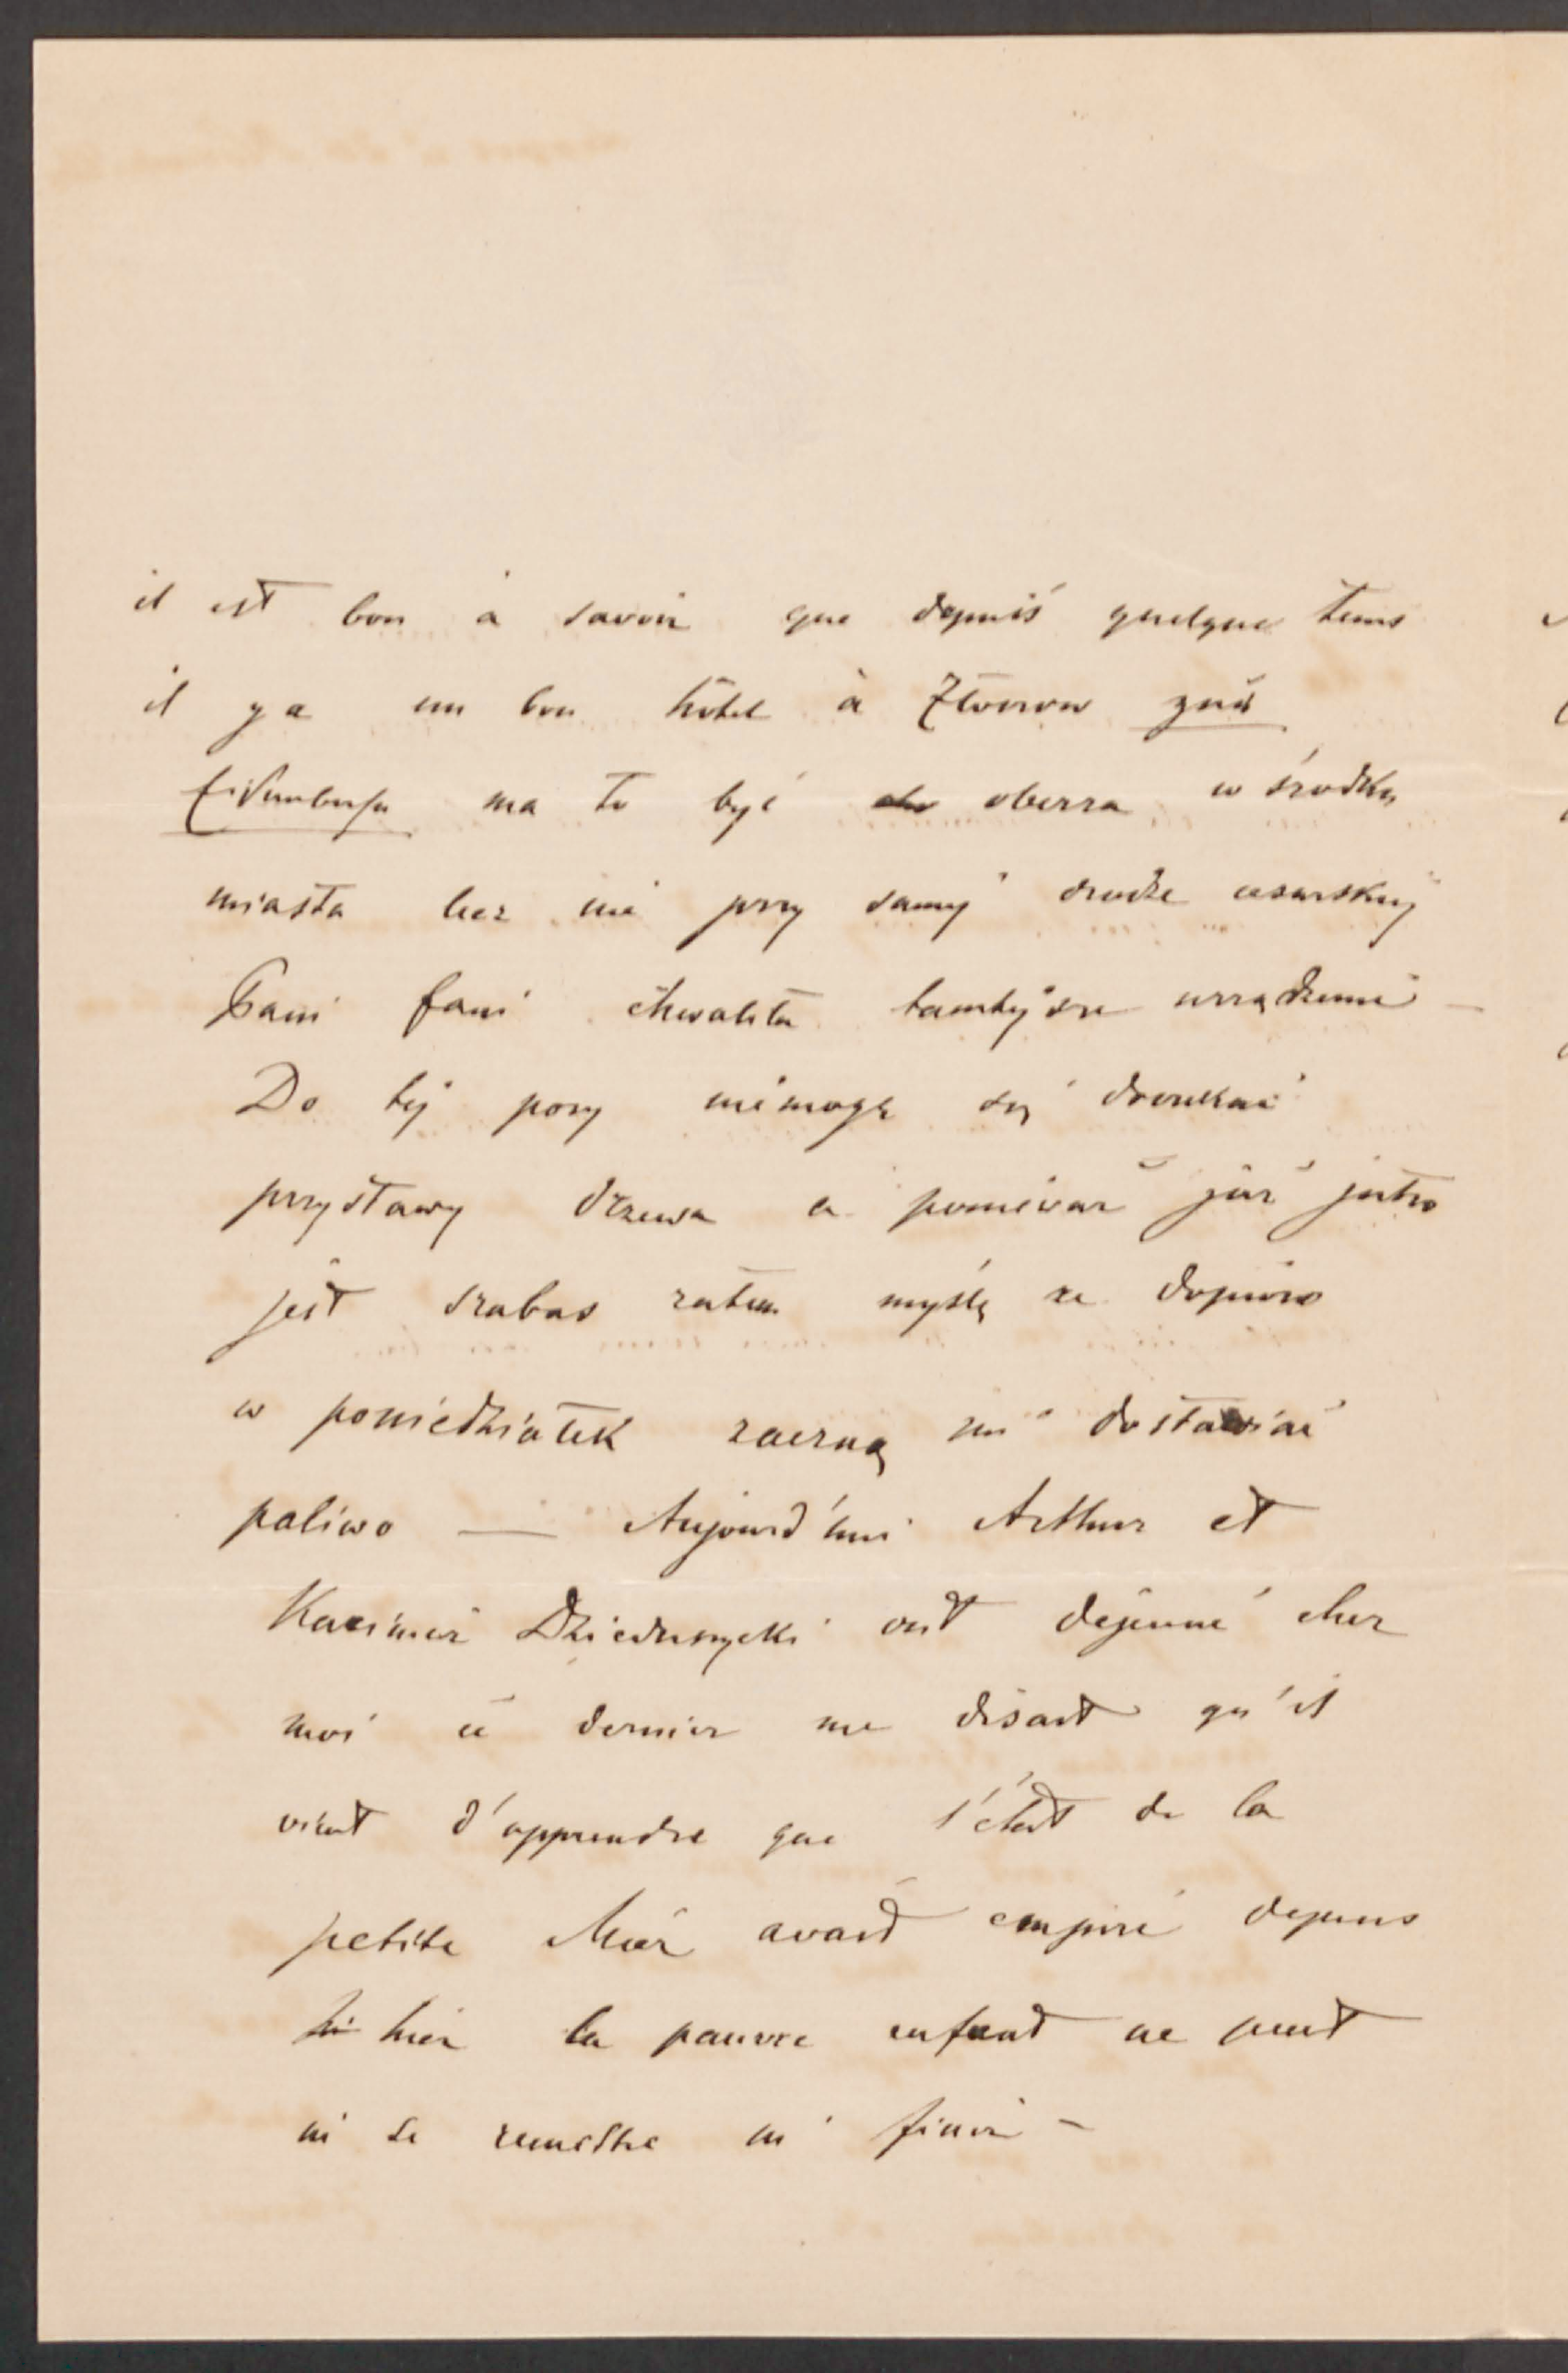 il est bon à savoir que depuis quelque tems
il y a un bon hôtel à Złoczow
ma to być oberża w środku
miasta lecz nie przy samej drodze cesarskiej
Pani Fani chwaliła tamtejsze urządzenie —
Do tej pory niemogę się doczekać
przystawy drzewa a ponieważ już jutro
jest szabas zatem myślę że dopiero
w poniedziałek zaczną mi dostawiać
paliwo — Aujourd'hui Arthur et
Kazimierz Dzieduszycki ont dejeuné chez
moi ce dernier me disait qu'il
vient d'apprendre que l'état de la
petite Mier avait empiré depuis
hier la pauvre enfant ne peut
ni se remettre ni finir —